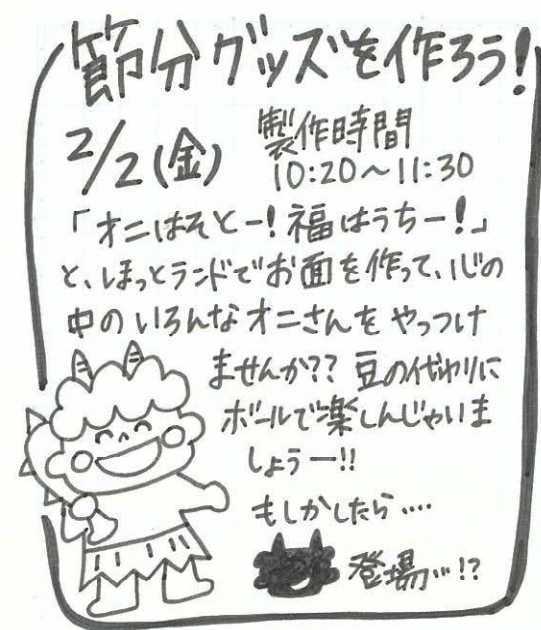 節分グッズを作ろう!
2/2(金) 製作時間
10:20～11:30
「オニはそとー!福はうちー!」
と、ほっとランドでお面を作って、心の
中のいろんなオニさんをやっつけ
ませんか?? 豆の代わりに
ボールで楽しんじゃいま
しょうー!!
もしかしたら….
登場…!?